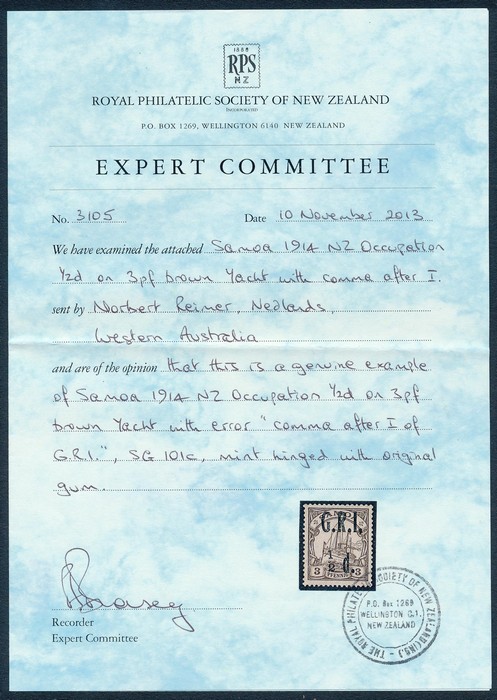 1888
RPS
NZ
ROYAL PHILATELIC SOCIETY OF NEW ZEALAND
INCORPORATED
P.O. BOX 1269, WELLINGTON 6140 NEW ZEALAND
EXPERT COMMITTEE
No. 3105 Date 10 November 2013
We have examined the attached Samoa 1914 NZ Occupation
½d on 3pf brown Yacht with comma after I.
sent by Norbert Reimer, Nedlands,
Western Australia
and are of the opinion that this is a genuine example
of Samoa 1914 NZ Occupation ½d on 3pf
brown Yacht with error "comma after I of
G.R.I.", SG 101c, mint hinged with original
gum.
G.R.I,
1
2 d.
3 PFENNIG 3
Recorder
Expert Committee
P.O. Box 1269
WELLINGTON C.1.
NEW ZEALAND